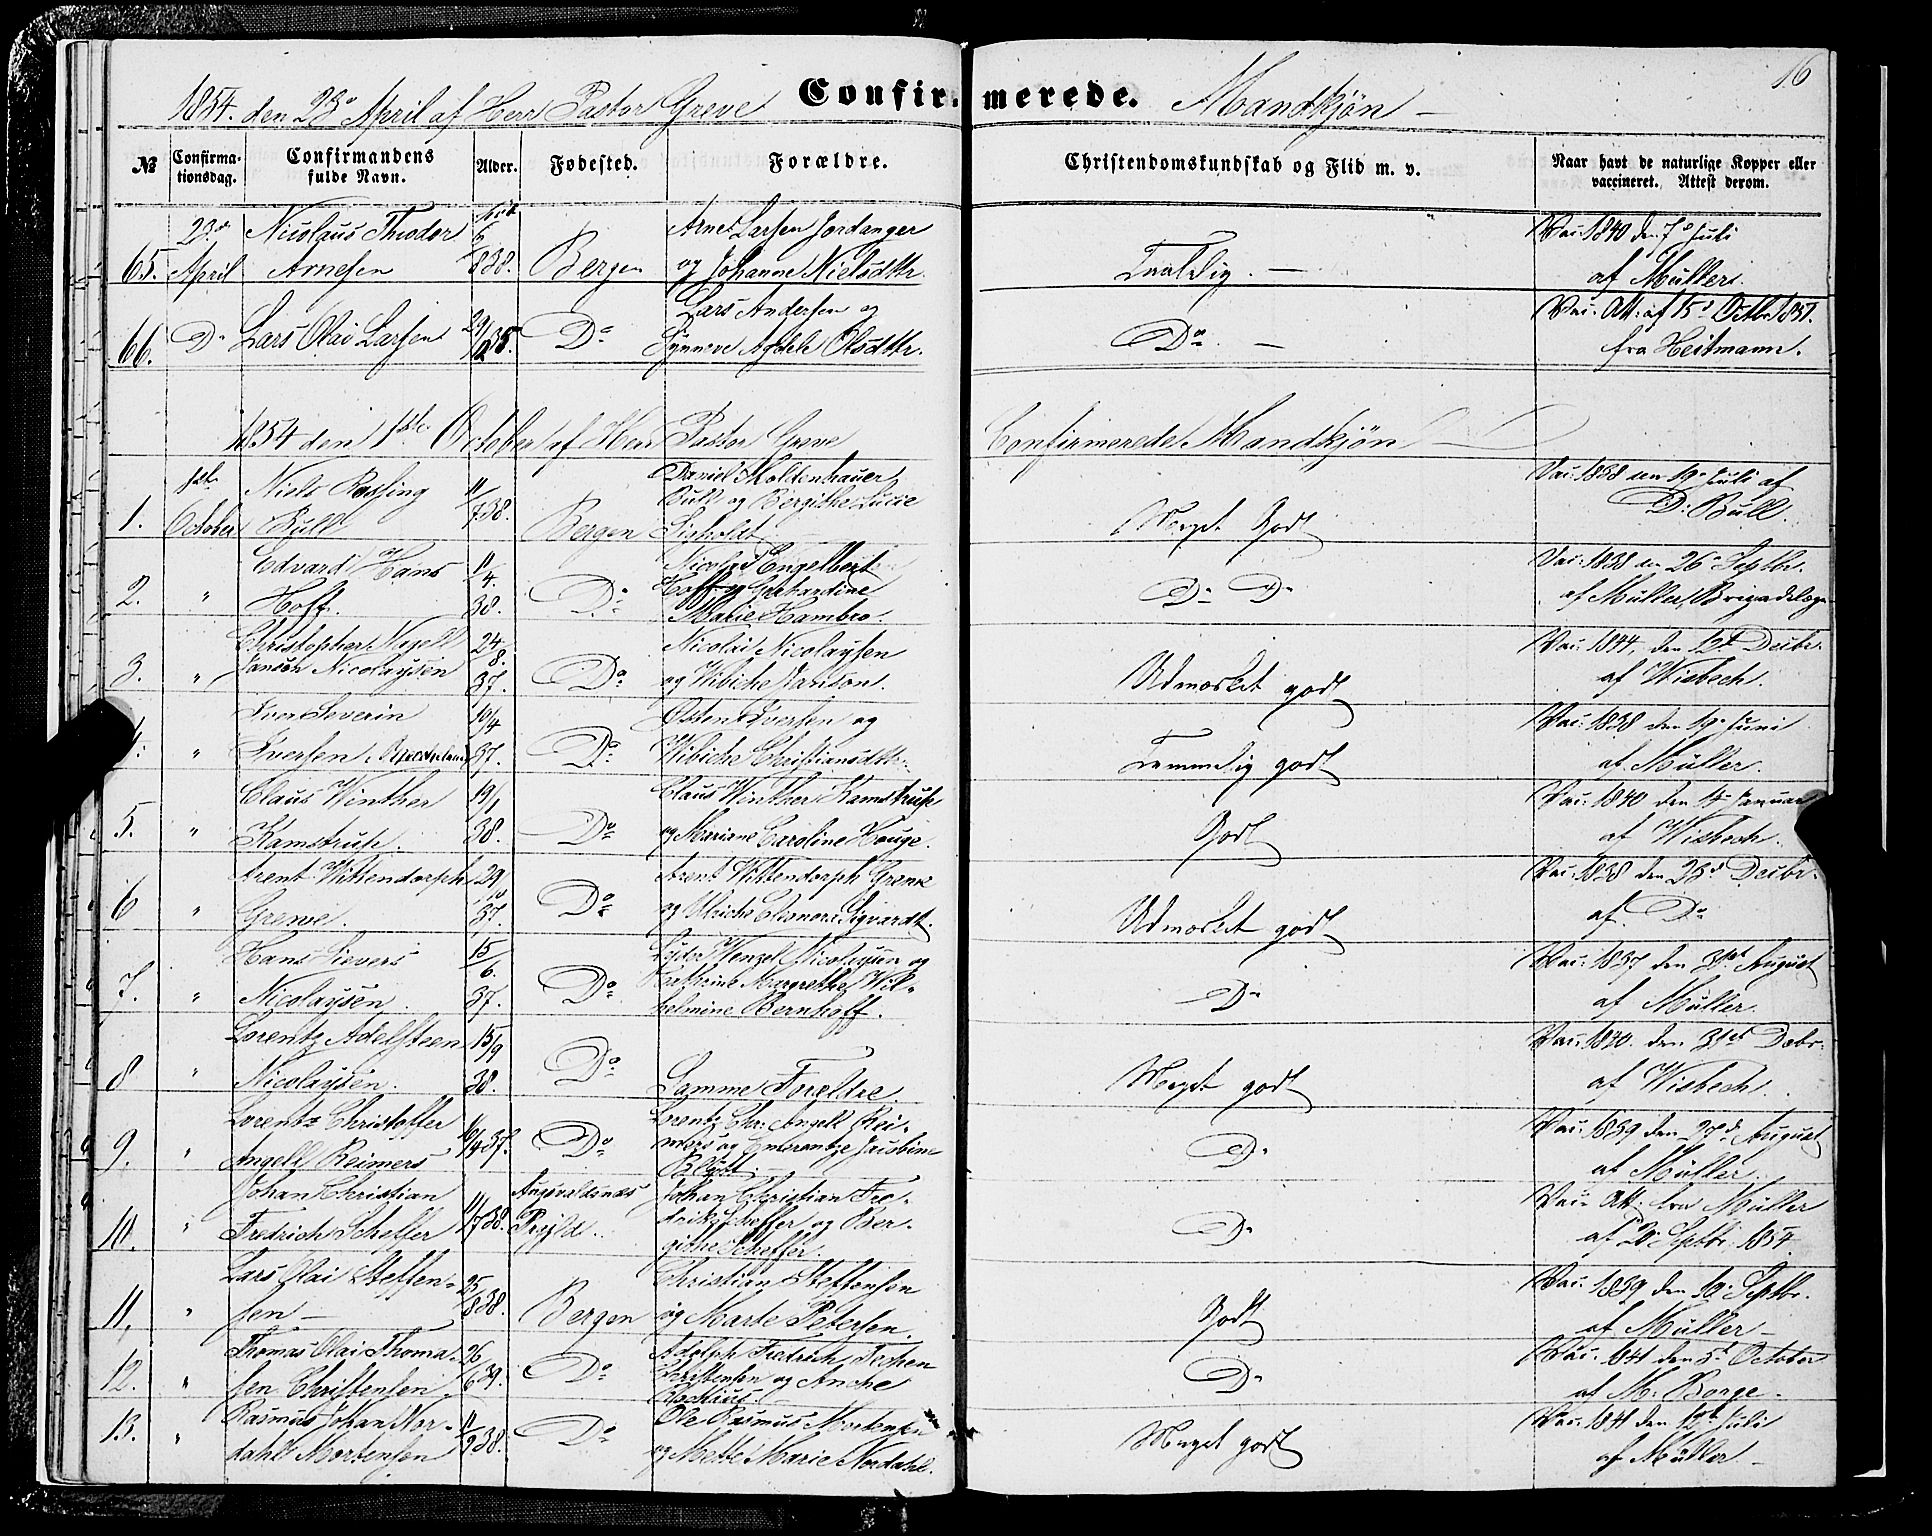 16
1854. den 23de April af Herr Pastor Greve Confirmerede. Mandkjøn —
№ Confirmationsdag. Confirmandens fulde Navn. Alder. Fødested. Forældre. Christendomskundskab og Flid m. v. Naar havt de naturlige Kopper eller vaccineret. Attest derom.
65. 23de April Nicolaus Theodor Arnesen 838. Bergen Arne Larsen Jordanger og Johanne Nielsdttr. Taalelig. — Vac: 1840 den 7de Juli af Müller.
66. Do Lars Olai Larsen Do Lars Andersen og Synneve Agdele Olsdttr. Do. — Vac. Att. af 15de Octbr. 1851. fra Heitmann.
1854 den 1ste October af Herr Pastor Greve Confirmerede Mandkjøn
1. 1ste October Niels Rossing Bull 11/7 38. Bergen Daniel Moldenhauer Bull og Bergithe Lucie Sigholdt Meget Godt Vac: 1838 den 19de Juli af D: Bull.
2. " Edvard Hans Hoff. 11/4. 38. Do Nicolai Engelbert Hoff og Gerhardine Marie Hambro. Do Do Vac: 1838 den 26de Septbr. af Müller Brigadelæge
3. " Christopher Nagell Janson Nicolaysen 24/8. 37. Do Nicolai Nicolaysen og Wibiche Janson. Udmærket godt Vac: 1844, den 12te Decbr. af Wisbech.
4. " Iver Severin Iversen 10/4 37. Do Østen Iversen og Wibiche Christiansdttr. Temmelig godt Vac: 1838 den 19de Juni af Müller.
5. " Claus Winther Kamstrup. 19/1 38. Do Claus Winther Kamstrup og Mariane Caroline Houge. Godt Vac: 1840 den 14de Januar af Wisbech.
6 " Arent Wittendorph Greve. 29/10 37. Do Arent Wittendorph Greve og Ulriche Eleonora Sigvardt. Udmærket godt Vac: 1838 den 23de Decbr. af Do
7. " Hans Sievers Nicolaysen. 15/6. 37. Do Lyder Wenzel Nicolaysen og Cathrine Margrethe Wilhelmine Bernhoff. Do Vac: 1837 den 31te August af Müller.
8 " Lorentz Adelsteen Nicolaysen. 15/9 38. Do Samme Forældre. Meget godt Vac: 1840. den 31te Decbr. af Wisbech.
9. " Lorentz Christoffer Angell Reimers 37. Do Lorentz Chr: Angell Reimers og Emerantze Jacobine Blydt. Do Vac: 1839 den 27de August af Müller
10. " Johan Christian Fredrich Scheffer 11/7 38. Augevaldsnæs Prgjld. Johan Christian Fredrik Scheffer og Bergithe Scheffer. Do Vac. Att. fra Müller af 20 Septbr. 1854
11. " Lars Olai Steffensen — 25/8 38. Bergen Christian Steffensen og Marte Petersen. Godt Vac: 1839 den 10de Septbr. af Müller —
12. " Thomas Olai Thomasen Christensen 26/6 39. Do Adolph Fredrich Techen Christensen og Anche Do Vac: 1841 den 5te October af M: Borge.
13. " Rasmus Johan Nordahl Mortensen 11/9 38. Do Ole Rasmus Mortensen og Mette Marie Nordahl. Meget godt Vac: 1841 den 12te Juli af Müller —